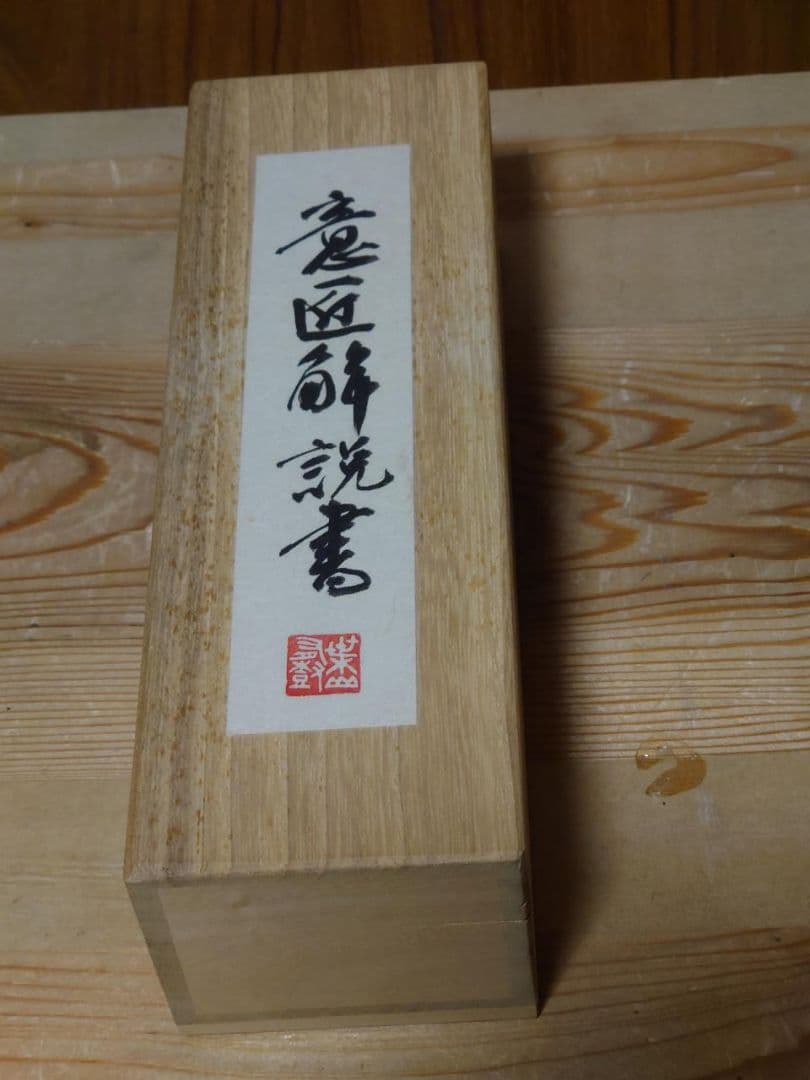 意匠解説書